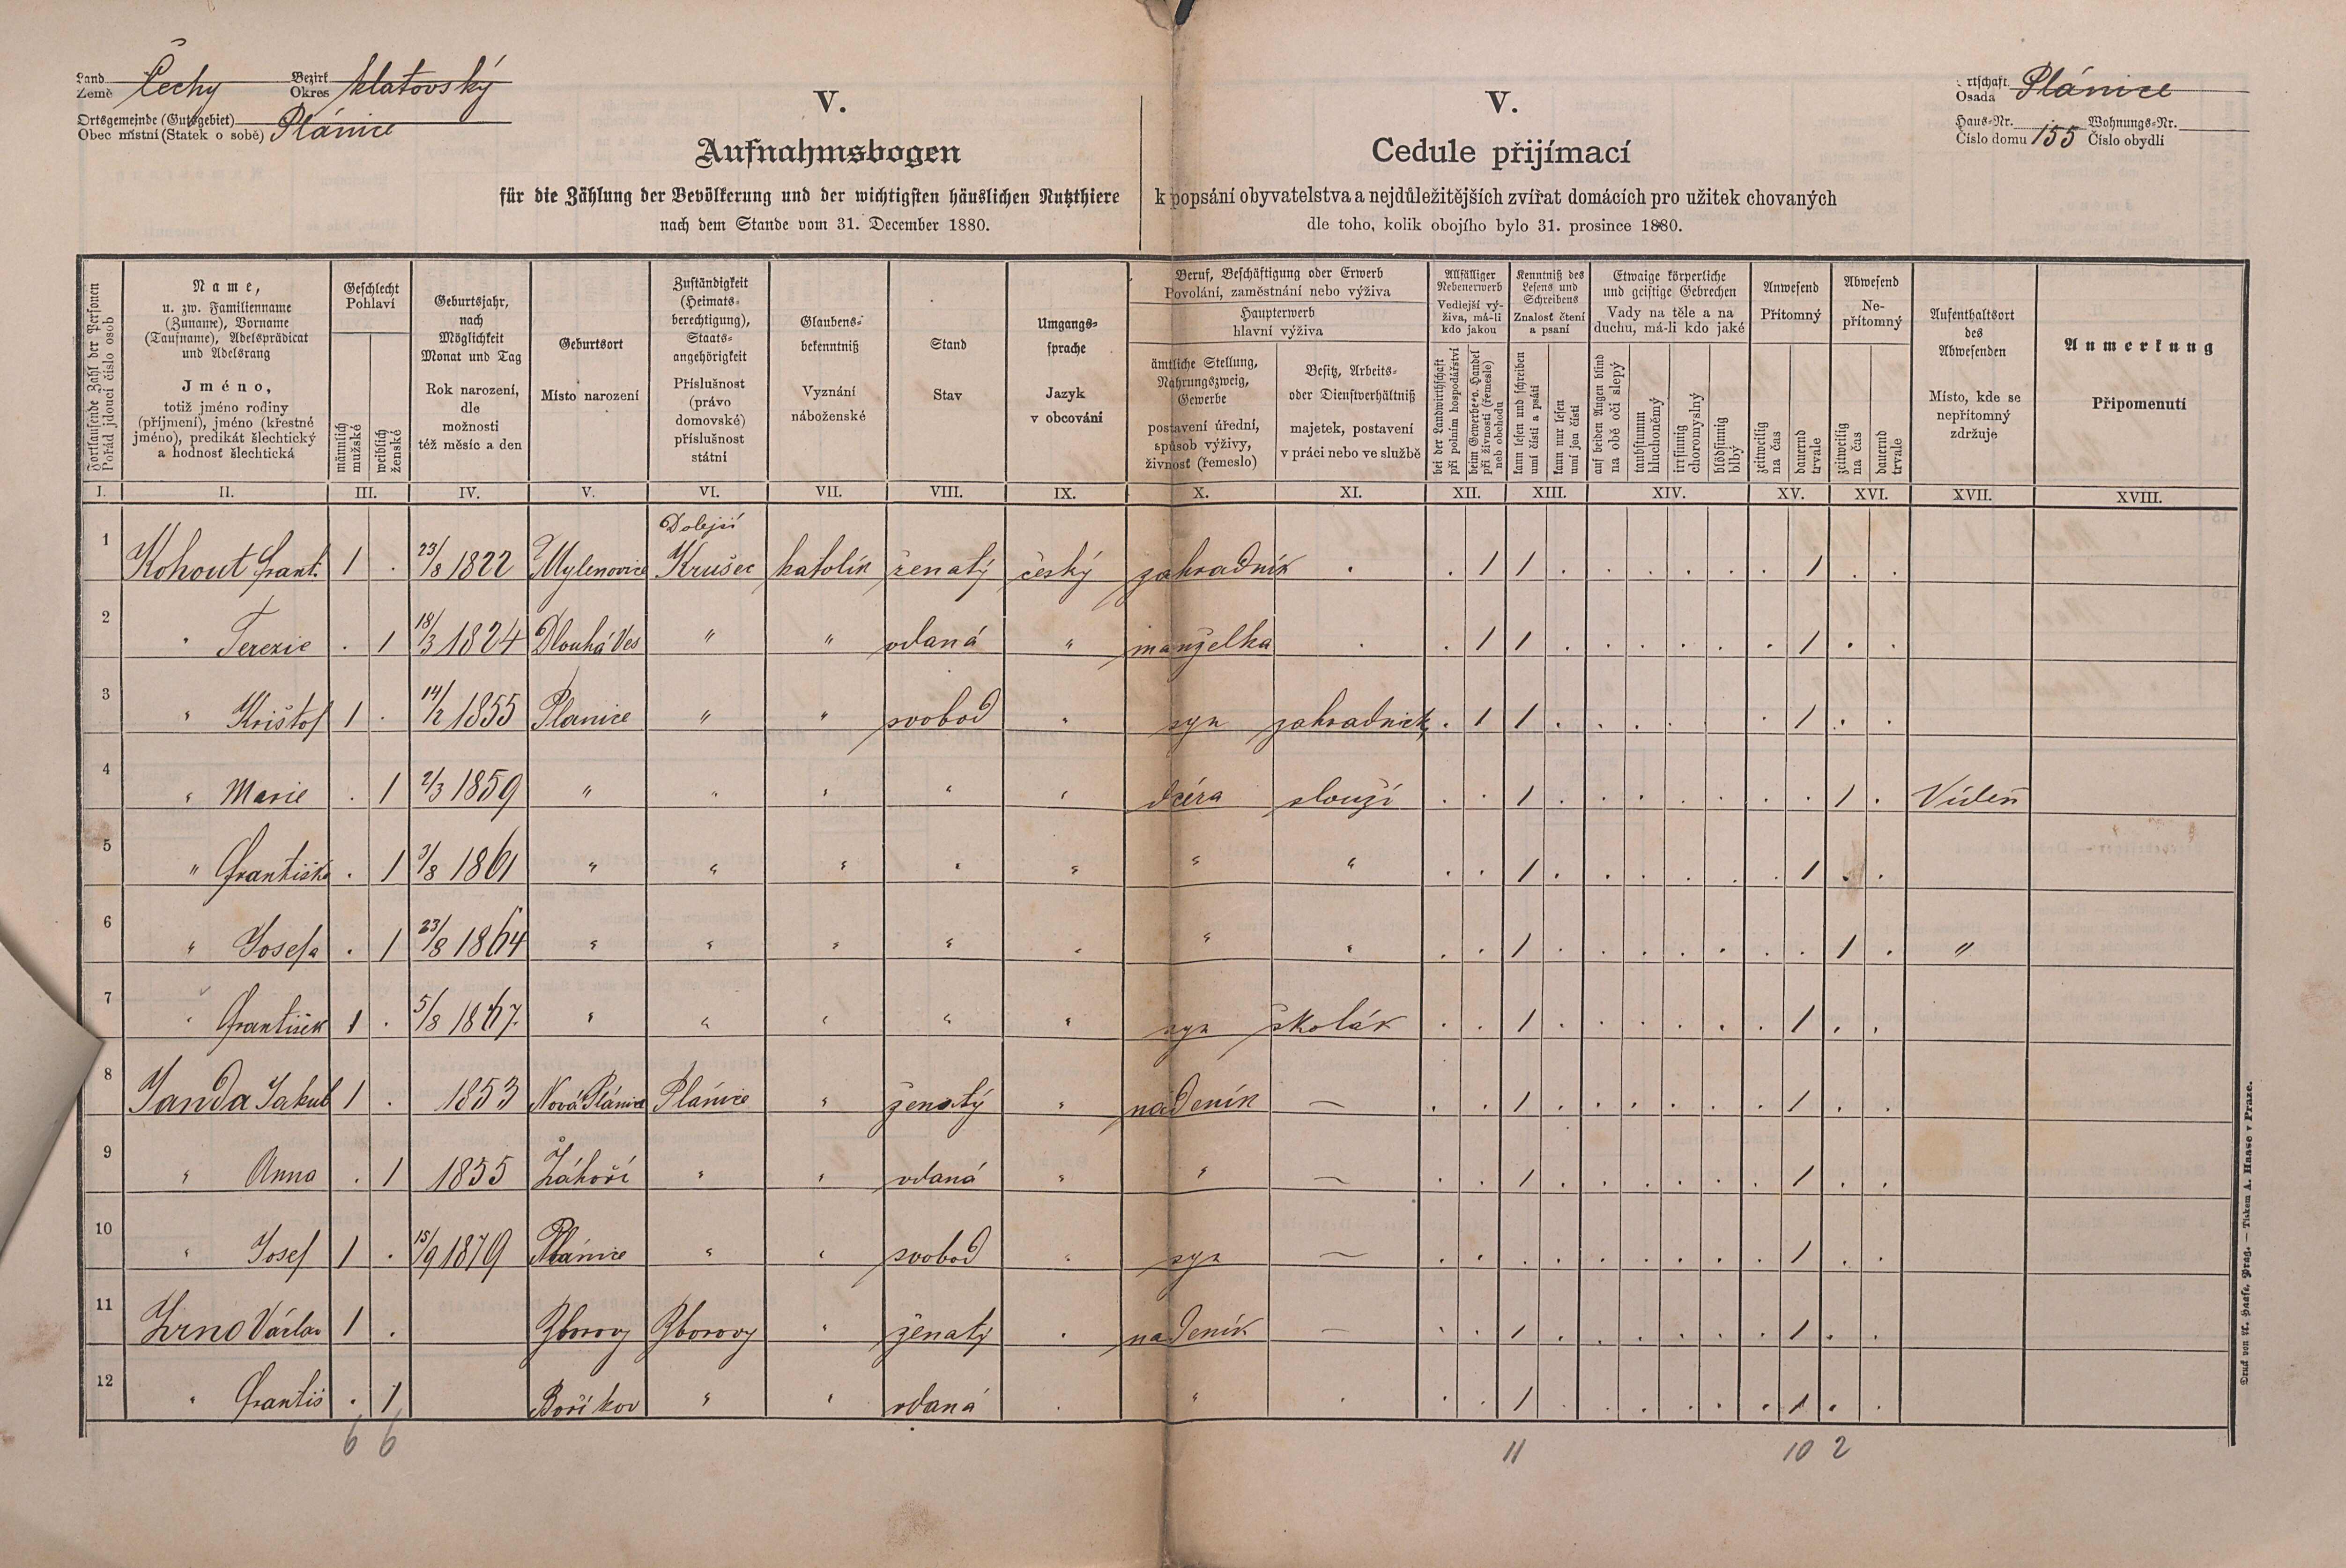 Land Země Čechy Bezirk Okres klatovský
Ortsgemeinde (Gutsgebiet)
Obec místní (Statek o sobě) Plánice
V.
Aufnahmsbogen
für die Zählung der Bevölkerung und der wichtigsten häuslichen Nutzthiere
nach dem Stande vom 31. December 1880.
V.
Cedule přijímací
k popsání obyvatelstva a nejdůležitějších zvířat domácích pro užitek chovaných
dle toho, kolik obojího bylo 31. prosince 1880.
rtschaft
Osada Plánice
Haus-Nr. Wohnungs-Nr.
Číslo domu 155 Číslo obydlí
Fortlaufende Zahl der Personen
Pořád jdoucí číslo osob
Name,
u. zw. Familienname
(Zuname), Vorname
(Taufname), Adelsprädicat
und Adelsrang
Jméno,
totiž jméno rodiny
(příjmení), jméno (křestné
jméno), predikát šlechtický
a hodnost šlechtická
Geschlecht
Pohlaví
männlich
mužské
weiblich
ženské
Geburtsjahr,
nach
Möglichkeit
Monat und Tag
Rok narození,
dle
možnosti
též měsíc a den
Geburtsort
Místo narození
Zuständigkeit
(Heimats-
berechtigung),
Staats-
angehörigkeit
Příslušnost
(právo
domovské)
příslušnost
státní
Glaubens-
bekenntniß
Vyznání
náboženské
Stand
Stav
Umgangs-
sprache
Jazyk
v obcování
Beruf, Beschäftigung oder Erwerb
Povolání, zaměstnání nebo výživa
Haupterwerb
hlavní výživa
ämtliche Stellung,
Nahrungszweig,
Gewerbe
postavení úřední,
spůsob výživy,
živnost (řemeslo)
Besitz, Arbeits-
oder Dienstverhältniß
majetek, postavení
v práci nebo ve službě
Allfälliger
Nebenerwerb
Vedlejší vý-
živa, má-li
kdo jakou
bei der Landwirthschaft
při polním hospodářství
beim Gewerbe o. Handel
při živnosti (řemesle)
neb obchodu
Kenntniß des
Lesens und
Schreibens
Znalost čtení
a psaní
kann lesen und schreiben
umí čísti a psáti
kann nur lesen
umí jen čísti
Etwaige körperliche
und geistige Gebrechen
Vady na těle a na
duchu, má-li kdo jaké
auf beiden Augen blind
na obě oči slepý
taubstumm
hluchoněmý
irrsinnig
choromyslný
blödsinnig
blbý
Anwesend
Přítomný
zeitweilig
na čas
dauernd
trvale
Abwesend
Ne-
přítomný
zeitweilig
na čas
dauernd
trvale
Aufenthaltsort
des
Abwesenden
Místo, kde se
nepřítomný
zdržuje
Anmerkung
Připomenutí
I. II. III. IV. V. VI. VII. VIII. IX. X. XI. XII. XIII. XIV. XV. XVI. XVII. XVIII.
Dolejší
1 Kohout Frant. 1 . 23/8 1822 Mylenovice Krušec katolík ženatý český zahradník . . 1 1 . . . . . . 1 . .
2 " Terezie . 1 18/3 1824 Dlouhá Ves " " vdaná " manželka . . 1 1 . . . . . . 1 . .
3 " Krištof 1 . 14/2 1855 Planice " " svobod " syn zahradnick . 1 1 . . . . . . 1 . .
4 " Marie . 1 2/3 1859 " " " " " dcéra slouží . . 1 . . . . . . . 1 . Vídeň
5 " Františka . 1 3/8 1861 " " " " " " " . . 1 . . . . . . 1 . .
6 " Josefa . 1 23/8 1864 " " " " " " " . . 1 . . . . . . . 1 . "
7 " František 1 . 5/8 1867. " " " " " syn školák . . 1 . . . . . . 1 . .
8 Janda Jakub 1 . 1853 Nová Plánice Plánice " ženatý " nádeník — . . 1 . . . . . . 1 . .
9 " Anna . 1 1855 Záhoří " " vdaná " " — . . 1 . . . . . . 1 . .
10 " Josef 1 . 15/9 1879 Plánice " " svobod " syn — . . . . . . . . . 1 . .
11 Zrno Václav 1 . Zborovy Zborovy " ženatý . nadeník — . . 1 . . . . . . 1 . .
12 " Františ . 1 Boříkov " " vdaná . " . . . 1 . . . . . . 1 . .
6 6 11 10 2
Druck von A. Haase, Prag. — Tiskem A. Haase v Praze.